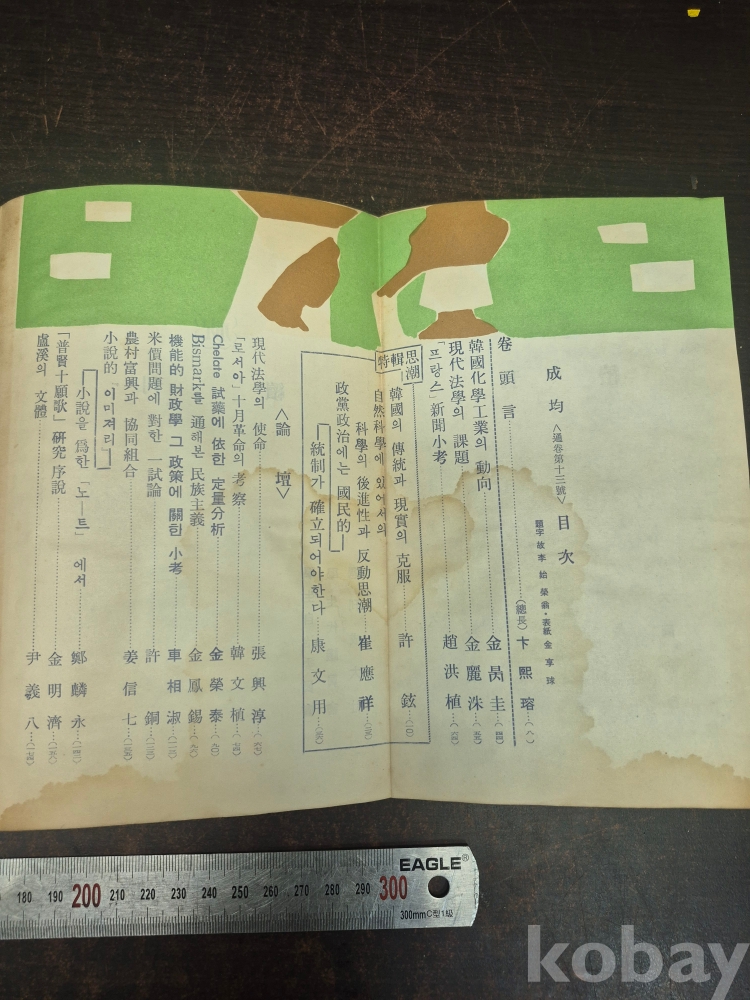 成均 <通卷第十三號> 目次
題字 故 李始榮翁·表紙 金享球
卷頭言 (總長) 卞熙瑢 (八)
韓國化學工業의 動向 金昺圭
現代法學의 課題 金麗洙
「프랑스」新聞小考 趙洪植
特輯 思潮
韓國의 傳統과 現實의 克服 許鉉
自然科學에 있어서의
科學의 後進性과 反動思潮 崔應祥
政黨政治에는 國民的
統制가 確立되어야한다 康文用
<論壇>
現代法學의 使命 張興淳
「로서아」十月革命의 考察 韓文植
Chelate 試藥에 依한 定量分析 金榮泰
Bismark를 通해본 民族主義 金鳳錫
機能的 財政學 그 政策에 關한 小考 車相淑
米價問題에 對한 一試論 許銅
農村富興과 協同組合 姜信七
小說的 「이미져리」
小說을 爲한 「노ー트」에서 鄭麟永
「普賢十願歌」硏究序說 金明濟
盧溪의 文體 尹義八
180 190 200 210 220 230 240 250 260 270 280 290 300
EAGLE®
300mm C型1級
kobay